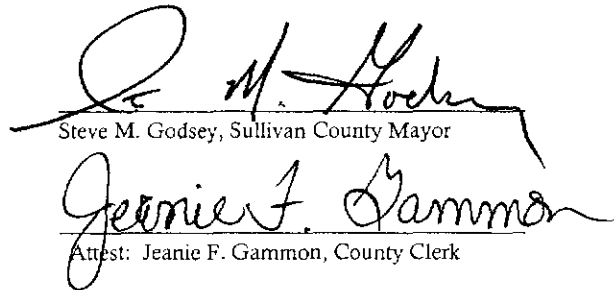 St M. Godsey
Steve M. Godsey, Sullivan County Mayor
Jeanie F. Gammon
Attest: Jeanie F. Gammon, County Clerk